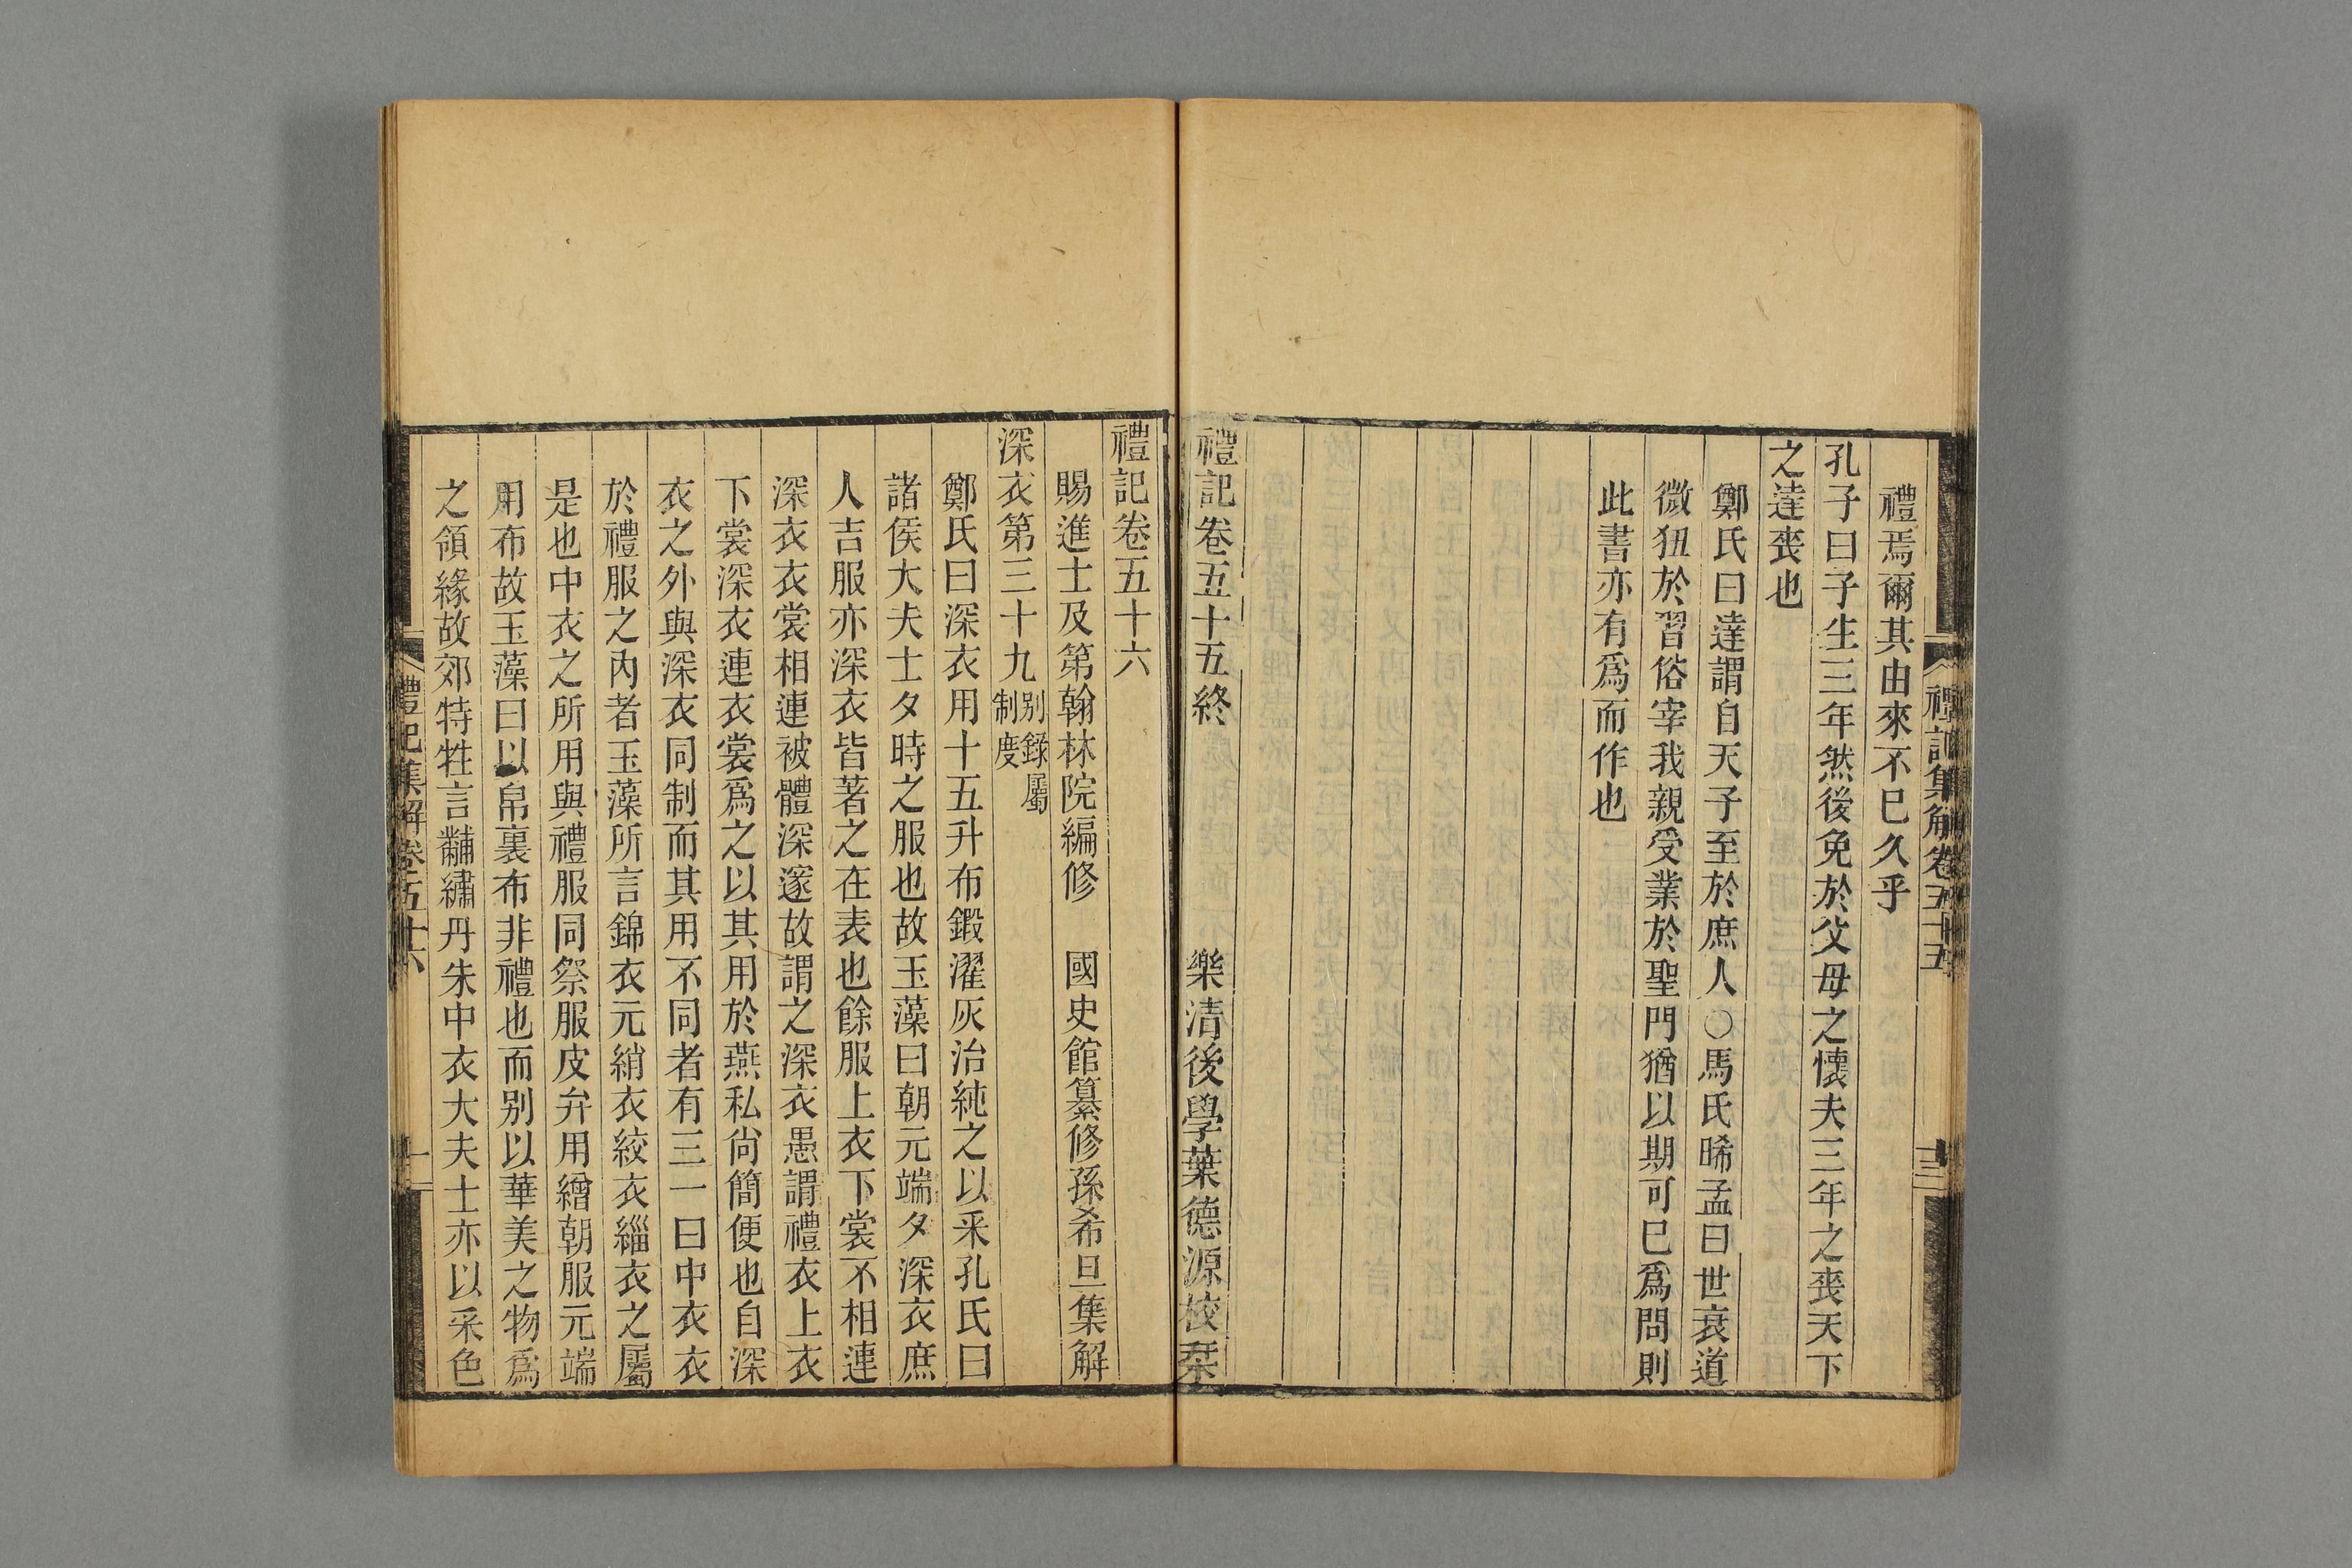 禮記集解卷五十五
十三
禮焉爾其由來不巳久乎
孔子曰子生三年然後免於父母之懐夫三年之喪天下
之達喪也
鄭氏曰達謂自天子至於庶人○馬氏晞孟曰世衰道
微狃於習俗宰我親受業於聖門猶以期可巳爲問則
此書亦有爲而作也
禮記卷五十五終
樂清後學葉德源校栞
禮記卷五十六
賜進士及第翰林院編修　國史館纂修孫希旦集解
深衣第三十九
别錄屬
制度
鄭氏曰深衣用十五升布鍛濯灰治純之以采孔氏曰
諸侯大夫士夕時之服也故玉藻曰朝元端夕深衣庶
人吉服亦深衣皆著之在表也餘服上衣下裳不相連
深衣衣裳相連被體深邃故謂之深衣愚謂禮衣上衣
下裳深衣連衣裳爲之以其用於燕私尙簡便也自深
衣之外與深衣同制而其用不同者有三一曰中衣衣
於禮服之內者玉藻所言錦衣元綃衣絞衣緇衣之屬
是也中衣之所用與禮服同祭服皮弁用繒朝服元端
用布故玉藻曰以帛裏布非禮也而别以華美之物爲
之領緣故郊特牲言黼繡丹朱中衣大夫士亦以采色
禮記集解卷五十六
一